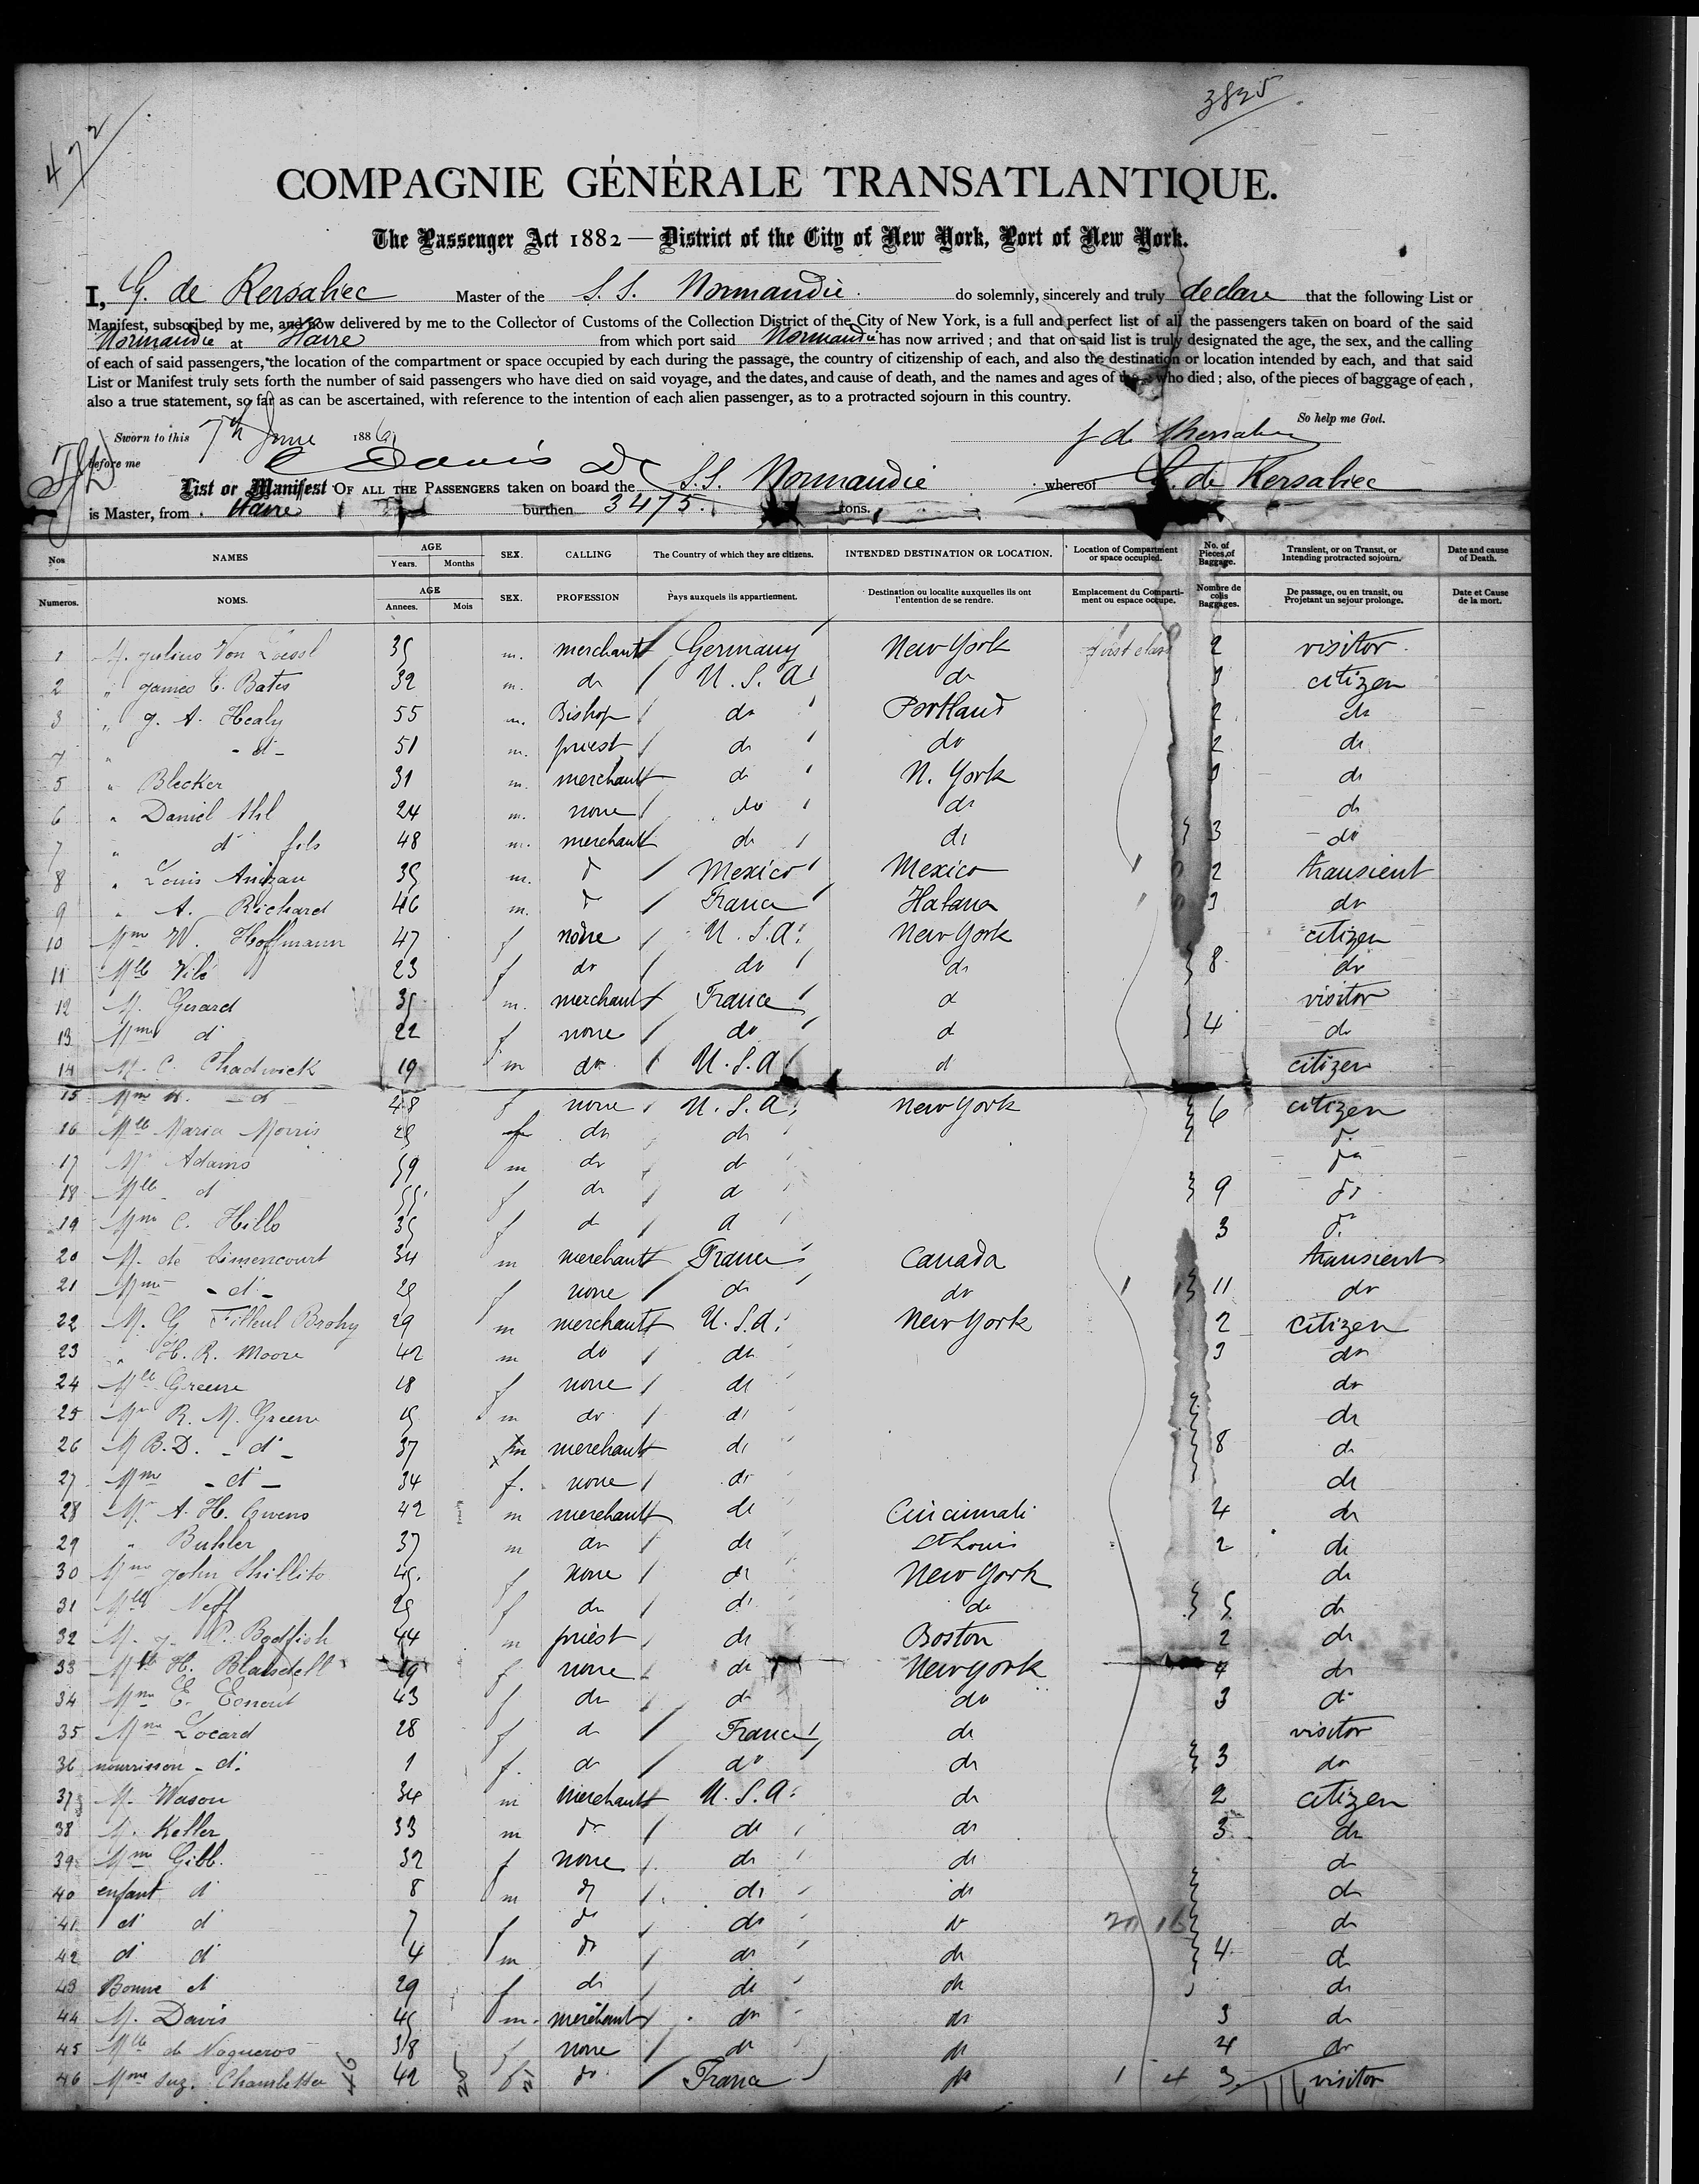 3825
472
COMPAGNIE GÉNÉRALE TRANSATLANTIQUE.
The Passenger Act 1882 — District of the City of New York, Port of New York.
I, G. de Kersabiec Master of the S.S. Normandie do solemnly, sincerely and truly declare that the following List or
Manifest, subscribed by me, and now delivered by me to the Collector of Customs of the Collection District of the City of New York, is a full and perfect list of all the passengers taken on board of the said
Normandie at Havre from which port said Normandie has now arrived ; and that on said list is truly designated the age, the sex, and the calling
of each of said passengers, the location of the compartment or space occupied by each during the passage, the country of citizenship of each, and also the destination or location intended by each, and that said
List or Manifest truly sets forth the number of said passengers who have died on said voyage, and the dates, and cause of death, and the names and ages of those who died ; also, of the pieces of baggage of each,
also a true statement, so far as can be ascertained, with reference to the intention of each alien passenger, as to a protracted sojourn in this country.
So help me God.
Sworn to this 7th June 1886
before me Davis
List or Manifest OF ALL THE PASSENGERS taken on board the S.S. Normandie whereof G. de Kersabiec
is Master, from Havre burthen 3475. tons.
Nos NAMES AGE Years. Months SEX. CALLING The Country of which they are citizens. INTENDED DESTINATION OR LOCATION. Location of Compartment or space occupied. No. of Pieces of Baggage. Transient, or on Transit, or Intending protracted sojourn. Date and cause of Death.
Numeros. NOMS. AGE Annees. Mois SEX. PROFESSION Pays auxquels ils appartiement. Destination ou localite auxquelles ils ont l'entention de se rendre. Emplacement du Comparti-ment ou espace occupe. Nombre de colis Baggages. De passage, ou en transit, ou Projetant un sejour prolonge. Date et Cause de la mort.
1 M. Julius Von Loessl 35 m. merchant Germany New York first class 2 visitor
2 " James C. Bates 32 m. do U.S.A do 3 citizen
3 " J. A. Healy 55 m. Bishop do Portland 2 do
4 " - d - 51 m. priest do do 2 do
5 " Blecker 31 m. merchant do N. York 3 do
6 " Daniel 24 m. none do do do
7 " d fils 48 m. merchant do do 3 do
8 " Louis Anizan 35 m. d Mexico Mexico 2 transient
9 " A. Richard 46 m. d France Habana 3 do
10 Mme W. Hoffmann 47 f none U.S.A. New York citizen
11 Mlle 23 f do do do 8 do
12 M. Gerard 35 m. merchant France d visitor
13 Mme d 22 f none do d 4 do
14 M. C. Chadwick 19 m do U.S.A d citizen
15 Mme - d - 48 f none U.S.A. New York 6 citizen
16 Mlle Maria Morris f do do do
17 Mr Adams 59 m do do do
18 Mlle d 55 f do d 9 do
19 Mme C. Hills 35 f do d 3 do
20 M. de Limencourt 34 m merchant France Canada transient
21 Mme - d - f none do do 11 do
22 M. G. Tilleul Brohy 29 m merchant U.S.A. New York 2 citizen
23 " H. R. Moore 42 m do do 3 do
24 Mlle Greene 18 f none do do
25 Mr R. M. Green m do do do
26 M B.D. - d - 37 m merchant do 8 do
27 Mme - d - 34 f. none do do
28 Mr A. H. Owens 42 m merchant do Cincinnati 4 do
29 " Buhler 37 m do do St Louis 2 do
30 Mme John Shillito 45. f none do New York do
31 Mlle Neff 25 f do do do 5 do
32 M. Bodfish 44 m priest do Boston 2 do
33 Mlle H. Blaisdell 19 f none do New York 4 do
34 Mme E. 43 f do do do 3 do
35 Mme Locard 28 f do France do visitor
36 nourrisson - d. 1 f. do do do 3 do
37 M. Wason 34 m merchant U.S.A. do 2 citizen
38 M. Keller 33 m do do do 3 do
39 Mme Gibb. 32 f none do do do
40 enfant d 8 m do do do do
41 d d 7 f do do do do
20 16
42 d d 4 m do do do 4 do
43 Bonne d 29 f do do do do
44 M. Davis 45 m. merchant do do 3 do
45 Mlle de Nogueros 38 f none do do 4 do
46 Mme Suz. 42 f do France do 1 4 3 visitor
46 25 21 116